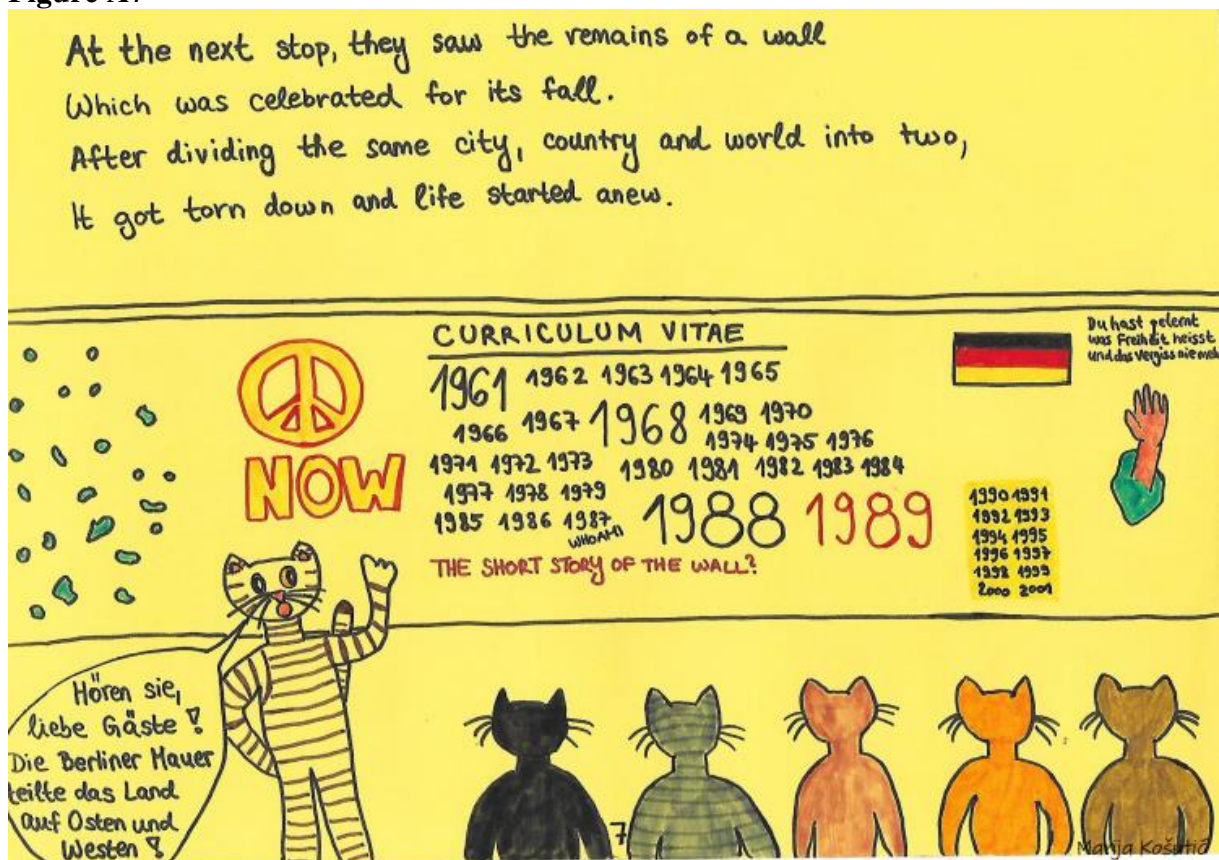 Figure A7
At the next stop, they saw the remains of a wall
Which was celebrated for its fall.
After dividing the same city, country and world into two,
It got torn down and life started anew.
NOW
CURRICULUM VITAE
1961 1962 1963 1964 1965
1966 1967 1968 1969 1970
1974 1975 1976
1971 1972 1973 1980 1981 1982 1983 1984
1977 1978 1979
1985 1986 1987 1988 1989
WHO AM I
THE SHORT STORY OF THE WALL?
Du hast gelernt
was Freiheit heisst
und das Vergiss nie meh
1990 1991
1992 1993
1994 1995
1996 1997
1998 1999
2000 2001
Hören sie,
liebe Gäste!
Die Berliner Mauer
teilte das Land
auf Osten und
Westen!
7
Marija Košutić